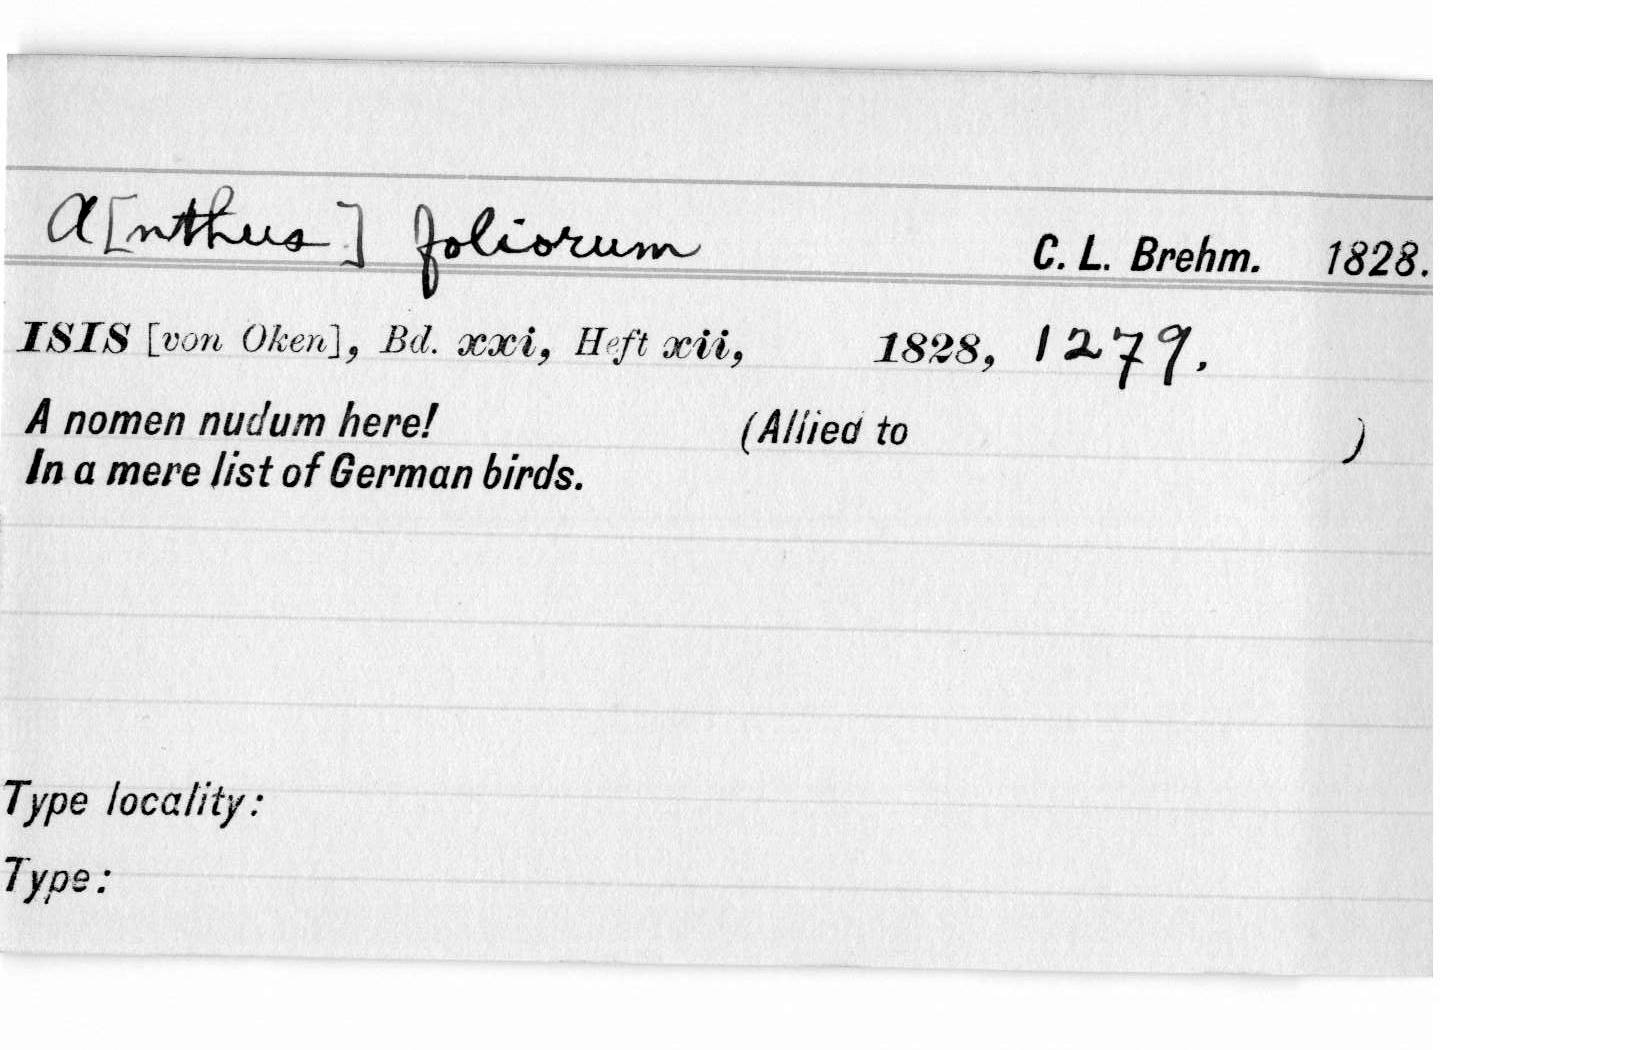 A[nthus] foliorum C. L. Brehm. 1828.
ISIS [von Oken], Bd. xxi, Heft xii, 1828, 1279.
A nomen nudum here! (Allied to )
In a mere list of German birds.
Type locality:
Type: